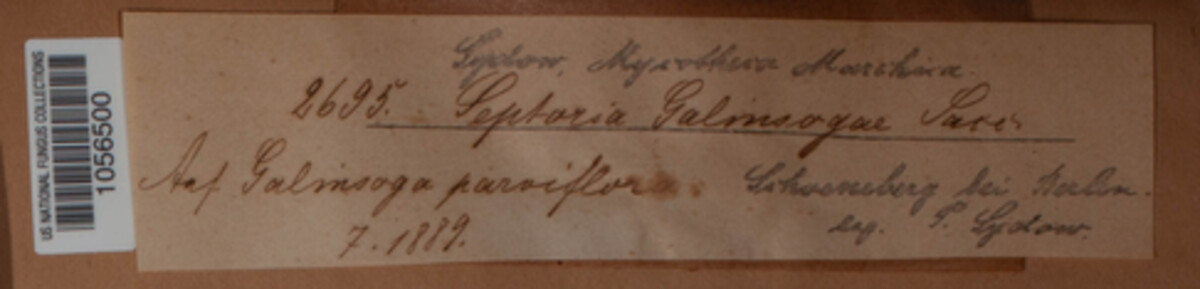 US NATIONAL FUNGUS COLLECTIONS
1056500
Sydow, Mycotheca Marchica.
2695. Septoria Galinsogae Sacc.
Auf Galinsoga parviflora. Schoeneberg bei Berlin.
7.1889. leg. P. Sydow.